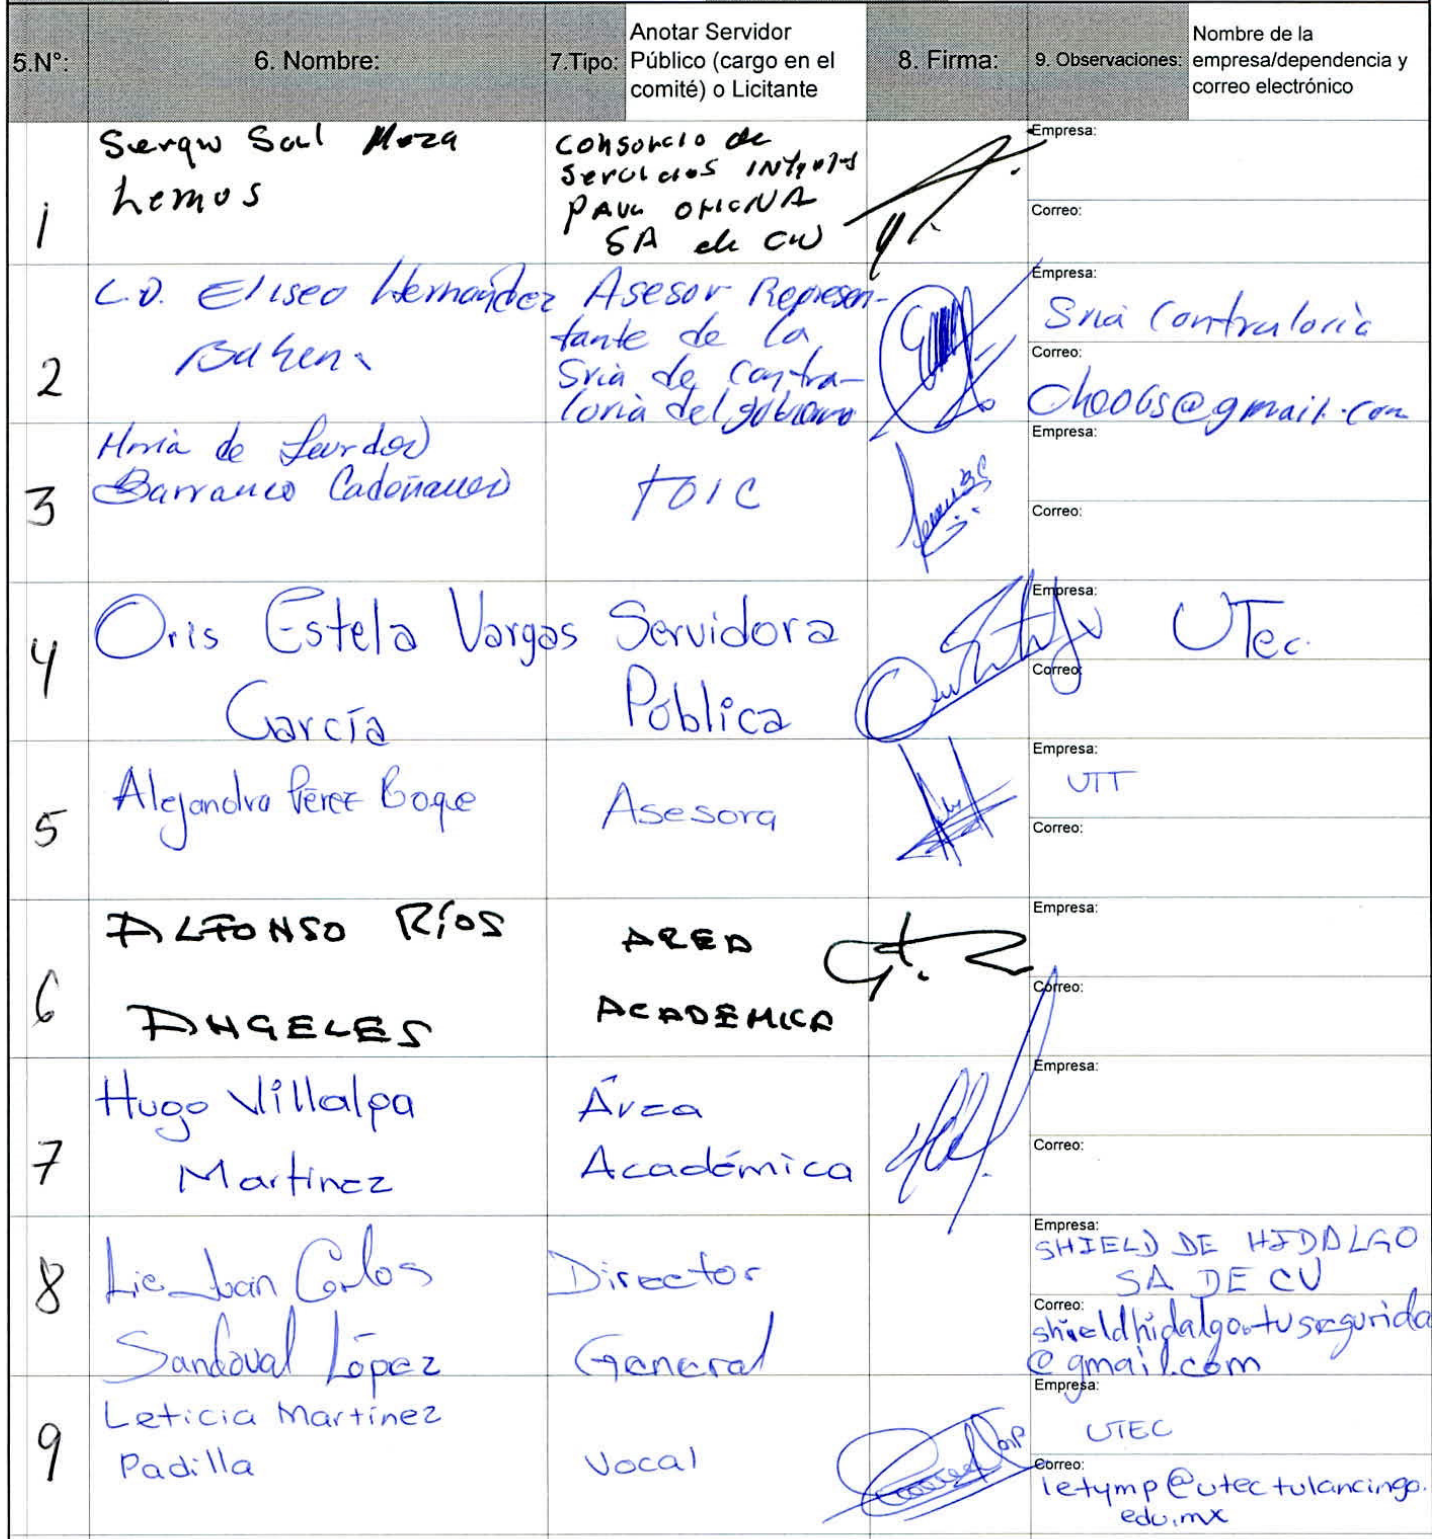 5.N°: 6. Nombre: 7.Tipo: Anotar Servidor Público (cargo en el comité) o Licitante 8. Firma: 9. Observaciones: Nombre de la empresa/dependencia y correo electrónico
1
Lemos
Consorcio de
SA de CV
Empresa:
Correo:
2
L.D. Eliseo Hernández
Bahena
Asesor Represen-
tante de la
Sria de Contra-
loria del gobierno
Empresa:
Sria Contraloria
Correo:
3
de Lourdes
Barranco
TOIC
Empresa:
Correo:
4
Oris Estela Vargas
García
Servidora
Pública
Empresa:
UTec.
Correo:
5
Pérez
Asesora
Empresa:
UTT
Correo:
6
ALFONSO Ríos
ANGELES
AREA
ACADEMICA
Empresa:
Correo:
7
Hugo Villalpa
Martínez
Área
Académica
Empresa:
Correo:
8
Lic Juan Carlos
Sandoval López
Director
General
Empresa:
SHIELD DE HIDALGO
SA DE CV
Correo:
@gmail.com
9
Leticia Martínez
Padilla
Vocal
Empresa:
UTEC
Correo:
letymp@utectulancingo.
edu.mx